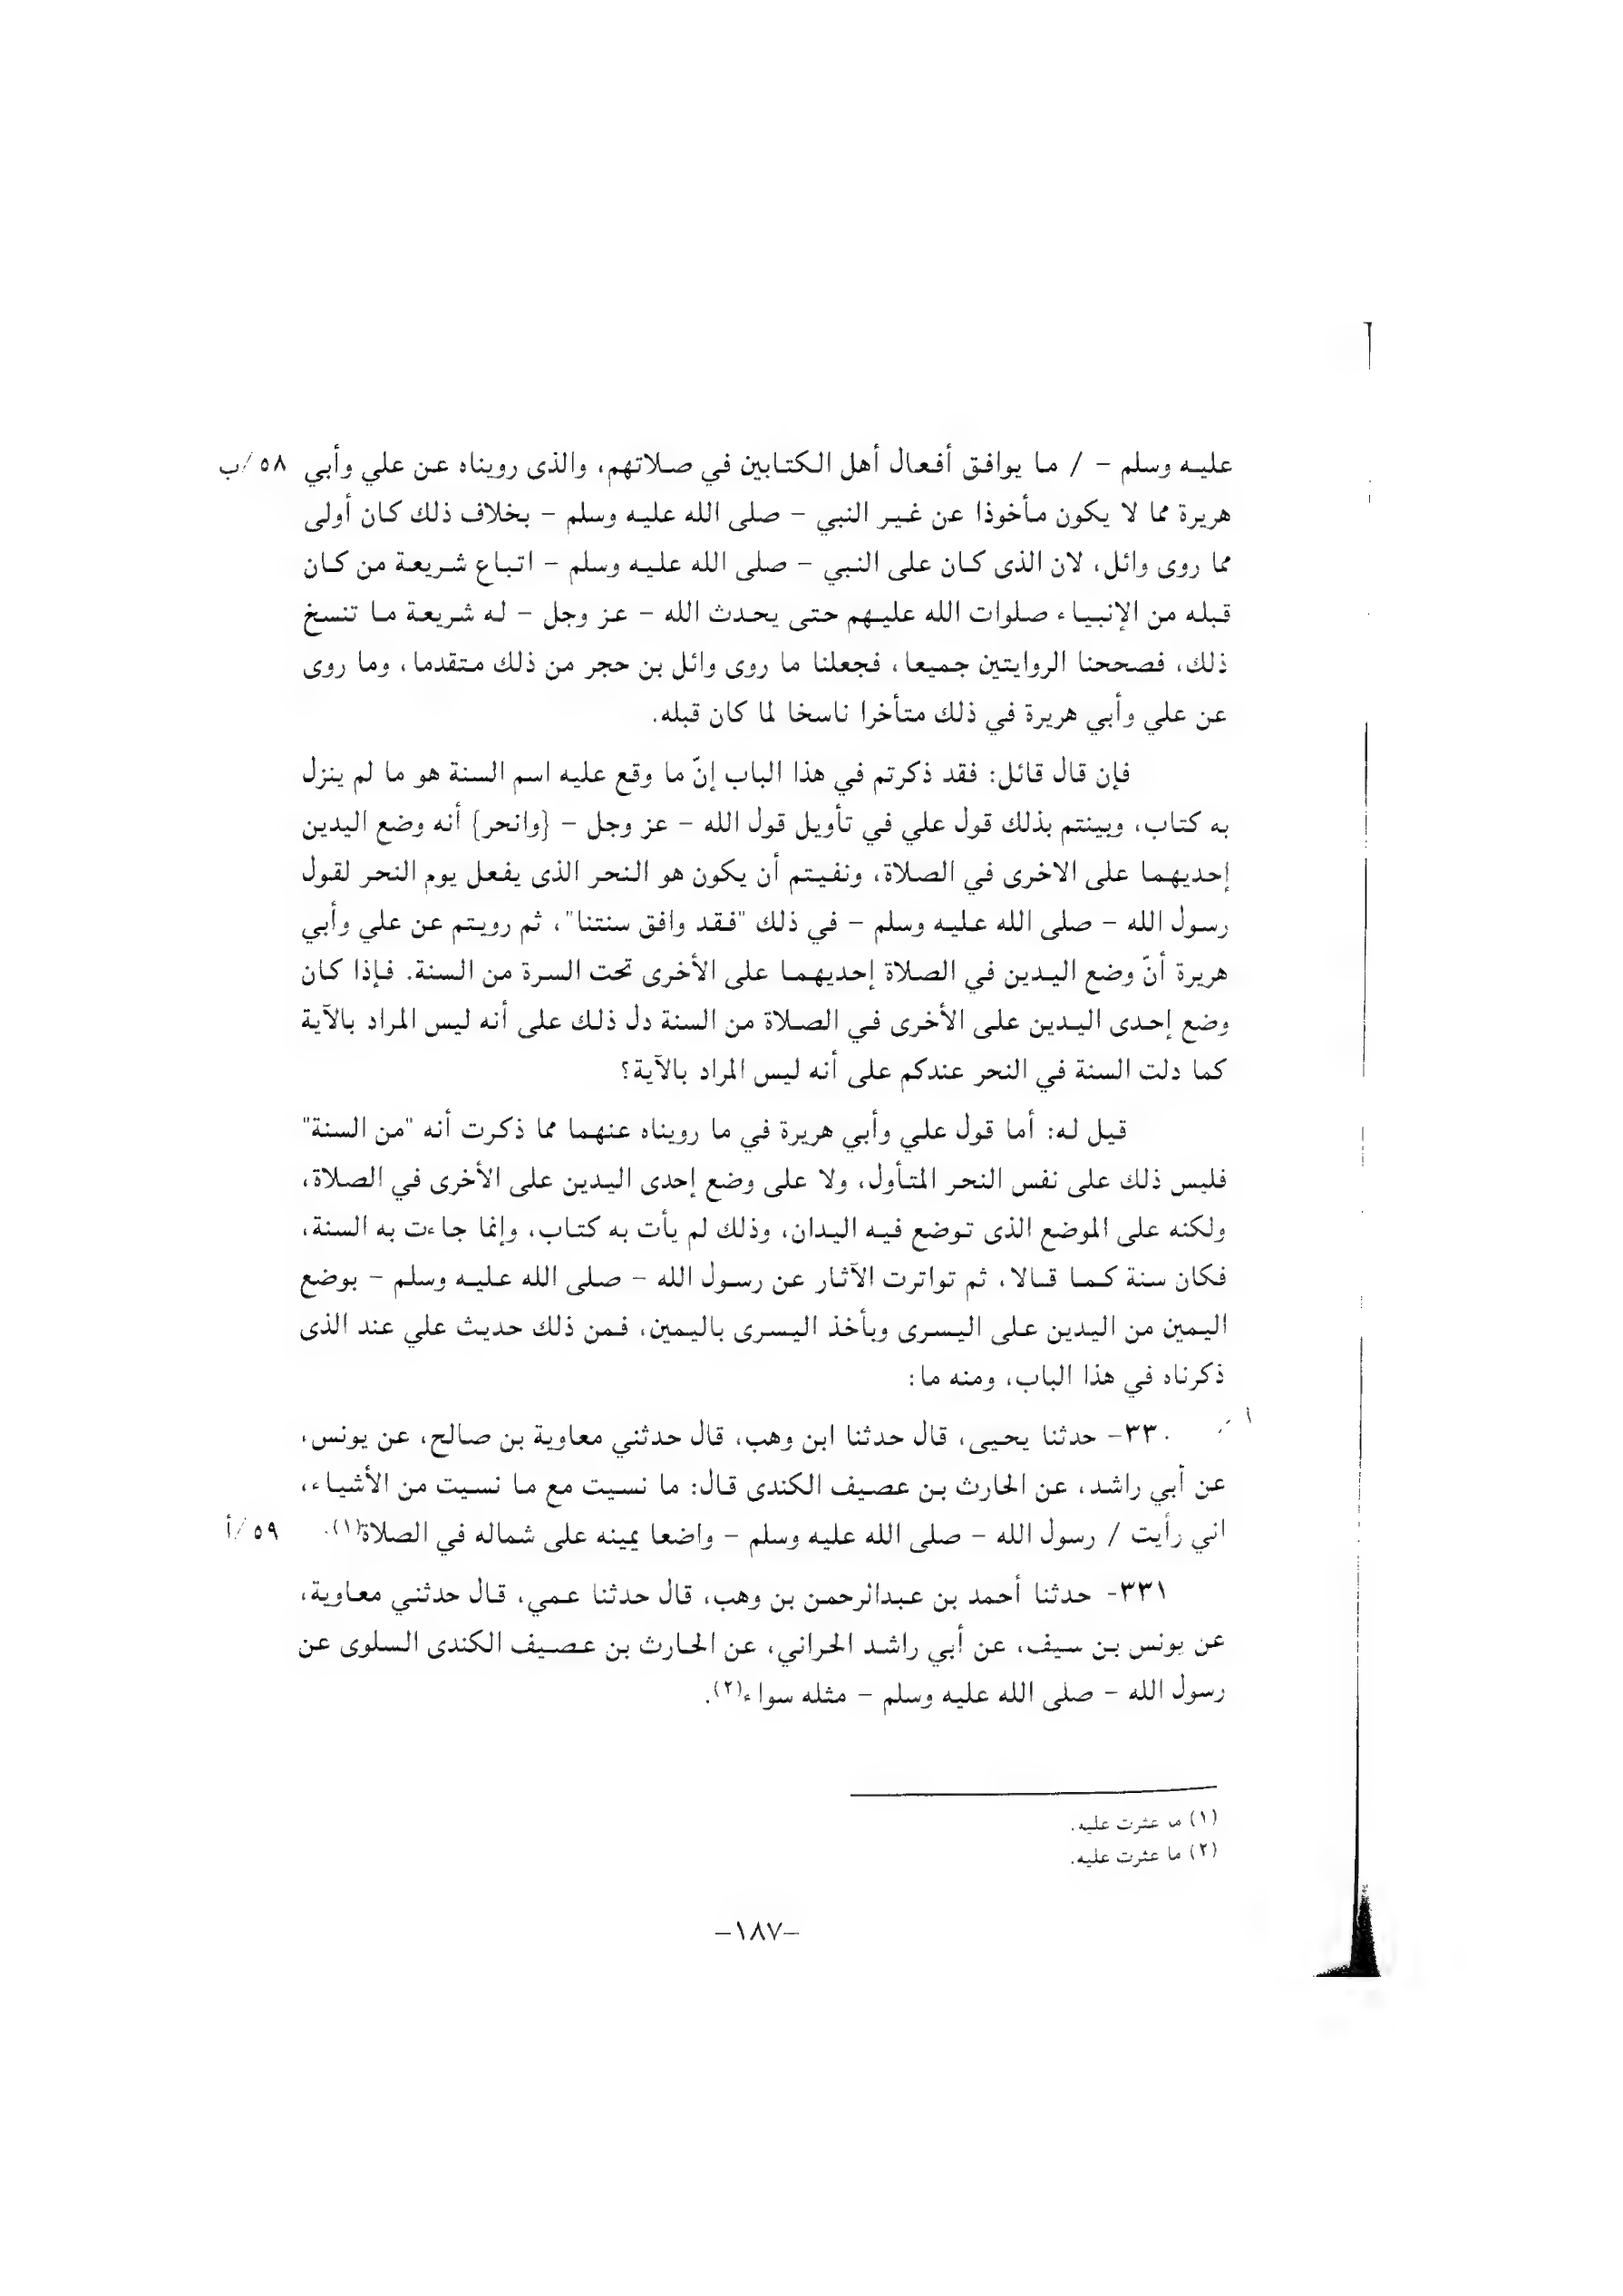 عليه وسلم – / ما يوافق أفعال أهل الكتابين في صلاتهم، والذى رويناه عن علي وأبي ٥٨/ب
هريرة مما لا يكون مأخوذا عن غير النبي – صلى الله عليه وسلم – بخلاف ذلك كان أولى
مما روى وائل، لان الذى كان على النبي – صلى الله عليه وسلم – اتباع شريعة من كان
قبله من الإنبياء صلوات الله عليهم حتى يحدث الله – عز وجل – له شريعة ما تنسخ
ذلك، فصححنا الروايتين جميعا، فجعلنا ما روى وائل بن حجر من ذلك متقدما، وما روى
عن علي وأبي هريرة في ذلك متأخرا ناسخا لما كان قبله.
فإن قال قائل: فقد ذكرتم في هذا الباب إنّ ما وقع عليه اسم السنة هو ما لم ينزل
به كتاب، وبينتم بذلك قول علي في تأويل قول الله – عز وجل – {وانحر} أنه وضع اليدين
إحديهما على الاخرى في الصلاة، ونفيتم أن يكون هو النحر الذى يفعل يوم النحر لقول
رسول الله – صلى الله عليه وسلم – في ذلك "فقد وافق سنتنا"، ثم رويتم عن علي وأبي
هريرة أنّ وضع اليدين في الصلاة إحديهما على الأخرى تحت السرة من السنة. فإذا كان
وضع إحدى اليدين على الأخرى في الصلاة من السنة دل ذلك على أنه ليس المراد بالآية
كما دلت السنة في النحر عندكم على أنه ليس المراد بالآية؟
قيل له: أما قول علي وأبي هريرة في ما رويناه عنهما مما ذكرت أنه "من السنة"
فليس ذلك على نفس النحر المتأول، ولا على وضع إحدى اليدين على الأخرى في الصلاة،
ولكنه على الموضع الذى توضع فيه اليدان، وذلك لم يأت به كتاب، وإنما جاءت به السنة،
فكان سنة كما قالا، ثم تواترت الآثار عن رسول الله – صلى الله عليه وسلم – بوضع
اليمين من اليدين على اليسرى وبأخذ اليسرى باليمين، فمن ذلك حديث علي عند الذى
ذكرناه في هذا الباب، ومنه ما:
٣٣٠- حدثنا يحيى، قال حدثنا ابن وهب، قال حدثني معاوية بن صالح، عن يونس،
عن أبي راشد، عن الحارث بن عصيف الكندى قال: ما نسيت مع ما نسيت من الأشياء،
اني رأيت / رسول الله – صلى الله عليه وسلم – واضعا يمينه على شماله في الصلاة(١). ٥٩/أ
٣٣١- حدثنا أحمد بن عبدالرحمن بن وهب، قال حدثنا عمي، قال حدثني معاوية،
عن يونس بن سيف، عن أبي راشد الحراني، عن الحارث بن عصيف الكندى السلوى عن
رسول الله – صلى الله عليه وسلم – مثله سواء(٢).
(١) ما عثرت عليه.
(٢) ما عثرت عليه.
–١٨٧–